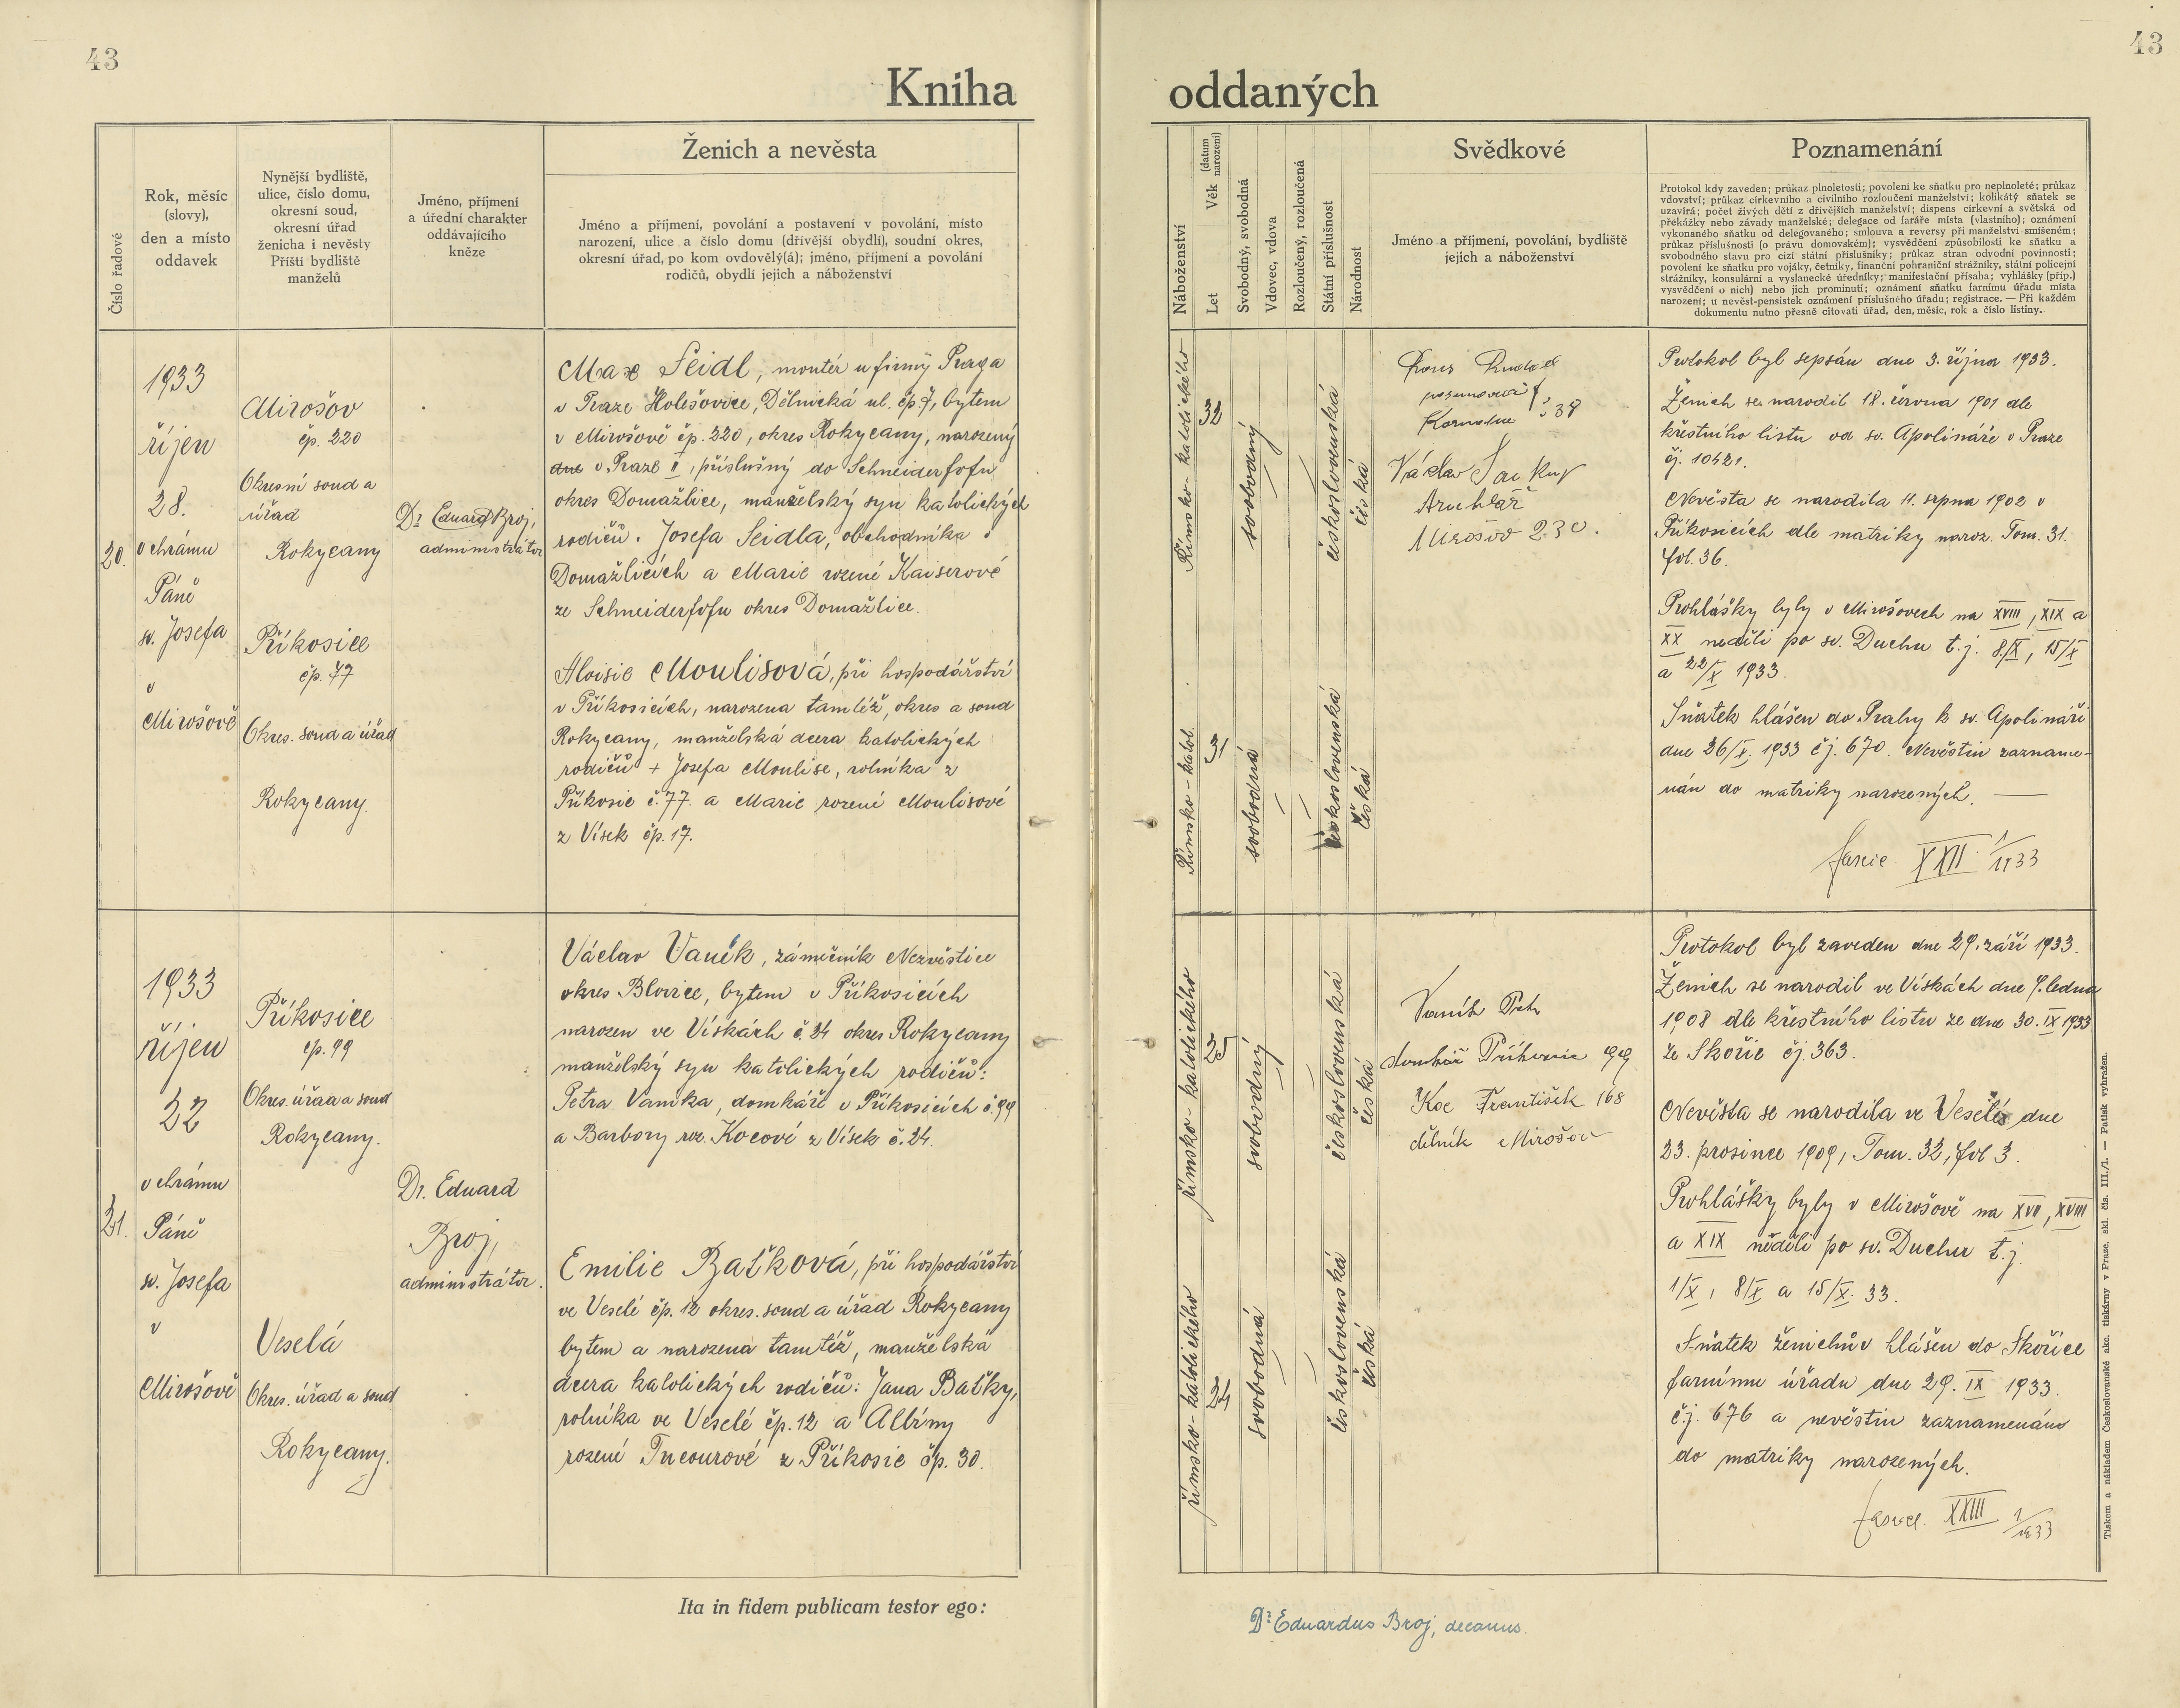 43
43
Kniha oddaných
Číslo řadové
Rok, měsíc
(slovy),
den a místo
oddavek
Nynější bydliště,
ulice, číslo domu,
okresní soud,
okresní úřad
ženicha i nevěsty
Příští bydliště
manželů
Jméno, příjmení
a úřední charakter
oddávajícího
kněze
Ženich a nevěsta
Jméno a příjmení, povolání a postavení v povolání, místo
narození, ulice a číslo domu (dřívější obydlí), soudní okres,
okresní úřad, po kom ovdovělý(á); jméno, příjmení a povolání
rodičů, obydlí jejich a náboženství
Náboženství
Let Věk (datum narození)
Svobodný, svobodná
Vdovec, vdova
Rozloučený, rozloučená
Státní příslušnost
Národnost
Svědkové
Jméno a příjmení, povolání, bydliště
jejich a náboženství
Poznamenání
Protokol kdy zaveden; průkaz plnoletosti; povolení ke sňatku pro nepinoleté; průkaz
vdovství; průkaz církevního a civilního rozloučení manželství; kolikátý sňatek se
uzavírá; počet živých dětí z dřívějších manželství; dispens církevní a světská od
překážky nebo závady manželské; delegace od faráře místa (vlastního); oznámení
vykonaného sňatku od delegovaného; smlouva a reversy při manželství smíšeném;
průkaz příslušnosti (o právu domovském); vysvědčení způsobilosti ke sňatku a
svobodného stavu pro cizí státní příslušníky; průkaz stran odvodní povinnosti;
povolení ke sňatku pro vojáky, četníky, finanční pohraniční strážníky, státní policejní
strážníky, konsulární a vyslanecké úředníky; manifestační přísaha; vyhlášky (příp.)
vysvědčení o nich) nebo jich prominutí; oznámení sňatku farnímu úřadu místa
narození; u nevěst-pensistek oznámení příslušného úřadu; registrace. — Při každém
dokumentu nutno přesně citovati úřad, den, měsíc, rok a číslo listiny.
20.
1933
říjen
28.
v chrámu
Páně
sv. Josefa
v
Mirošově
Mirošov
čp. 220
Okresní soud a
úřad
Rokycany
Příkosice
čp. 77
Okres. soud a úřad
Rokycany.
Dr Eduard Broj,
administrátor
Max Seidl, montér u firmy Praga
v Praze Holešovice, Dělnická ul. čp. 7, bytem
v Mirošově čp. 220, okres Rokycany, narozený
dne v Praze II, příslušný do Schneiderfofu
okres Domažlice, manželský syn katolických
rodičů. Josefa Seidla, obchodníka v
Domažlicích a Marie rozené Kaiserové
ze Schneiderfofu okres Domažlice.
Aloisie Moulisová, při hospodářství
v Příkosicích, narozena tamtéž, okres a soud
Rokycany, manželská dcera katolických
rodičů + Josefa Moulise, rolníka z
Příkosic č. 77. a Marie rozené Moulisové
z Vísek čp. 17.
Římsko-katolického
32
svobodný
československá
česká
Římsko-katol.
31
svobodná
československá
česká
Václav
Mirošov 230.
Protokol byl sepsán dne 3. října 1933.
Ženich se narodil 18. června 1901 dle
křestního listu od sv. Apolináře v Praze
čj. 10421.
Nevěsta se narodila 11. srpna 1902 v
Příkosicích dle matriky naroz. Tom. 31.
fol. 36.
Prohlášky byly v Mirošovech na XVIII, XIX a
XX neděli po sv. Duchu t.j. 8/X, 15/X
a 22/X 1933.
Sňatek hlášen do Prahy k sv. Apolináři
dne 26/X. 1933 čj. 670. Nevěstin zazname-
nán do matriky narozených.
XXII 1/1933
21.
1933
říjen
22
v chrámu
Páně
sv. Josefa
v
Mirošově
Příkosice
čp. 99
Okres. úřad a soud
Rokycany.
Veselá
Okres. úřad a soud
Rokycany.
Dr. Eduard
Broj,
administrátor.
Václav Vaník, zámečník Nezvěstice
okres Blovice, bytem v Příkosicích
narozen ve Vískách č. 24 okres Rokycany
manželský syn katolických rodičů:
Petra Vaníka, domkáře v Příkosicích č. 99
a Barbory roz. Kocové z Vísek č. 24.
Emilie Baťková, při hospodářství
ve Veselé čp. 12 okres. soud a úřad Rokycany
bytem a narozena tamtéž, manželská
dcera katolických rodičů: Jana Baťky,
rolníka ve Veselé čp. 12 a Albiny
rozené Tncourové z Příkosic čp. 30.
římsko-katolického
25
svobodný
československá
česká
římsko-katolického
24
svobodná
československá
česká
Vaník Petr
domkář Příkosice 99
Koc František 168
dělník Mirošov
Protokol byl zaveden dne 29. září 1933.
Ženich se narodil ve Vískách dne 9. ledna
1908 dle křestního listu ze dne 30. IX 1933
ze Skořic čj. 363.
Nevěsta se narodila ve Veselé dne
23. prosince 1909, Tom. 32, fol 3.
Prohlášky byly v Mirošově na XVII, XVIII
a XIX neděli po sv. Duchu t.j.
1/X, 8/X a 15/X. 33.
Sňatek ženichův hlášen do Skořice
farnímu úřadu dne 29. IX 1933.
č.j. 676 a nevěstin zaznamenán
do matriky narozených.
fascl. XXIII 1/1933
Tiskem a nákladem Československé akc. tiskárny v Praze, skl. čís. III./1. — Patisk vyhražen.
Ita in fidem publicam testor ego:
Dr Eduardus Broj, decanus.